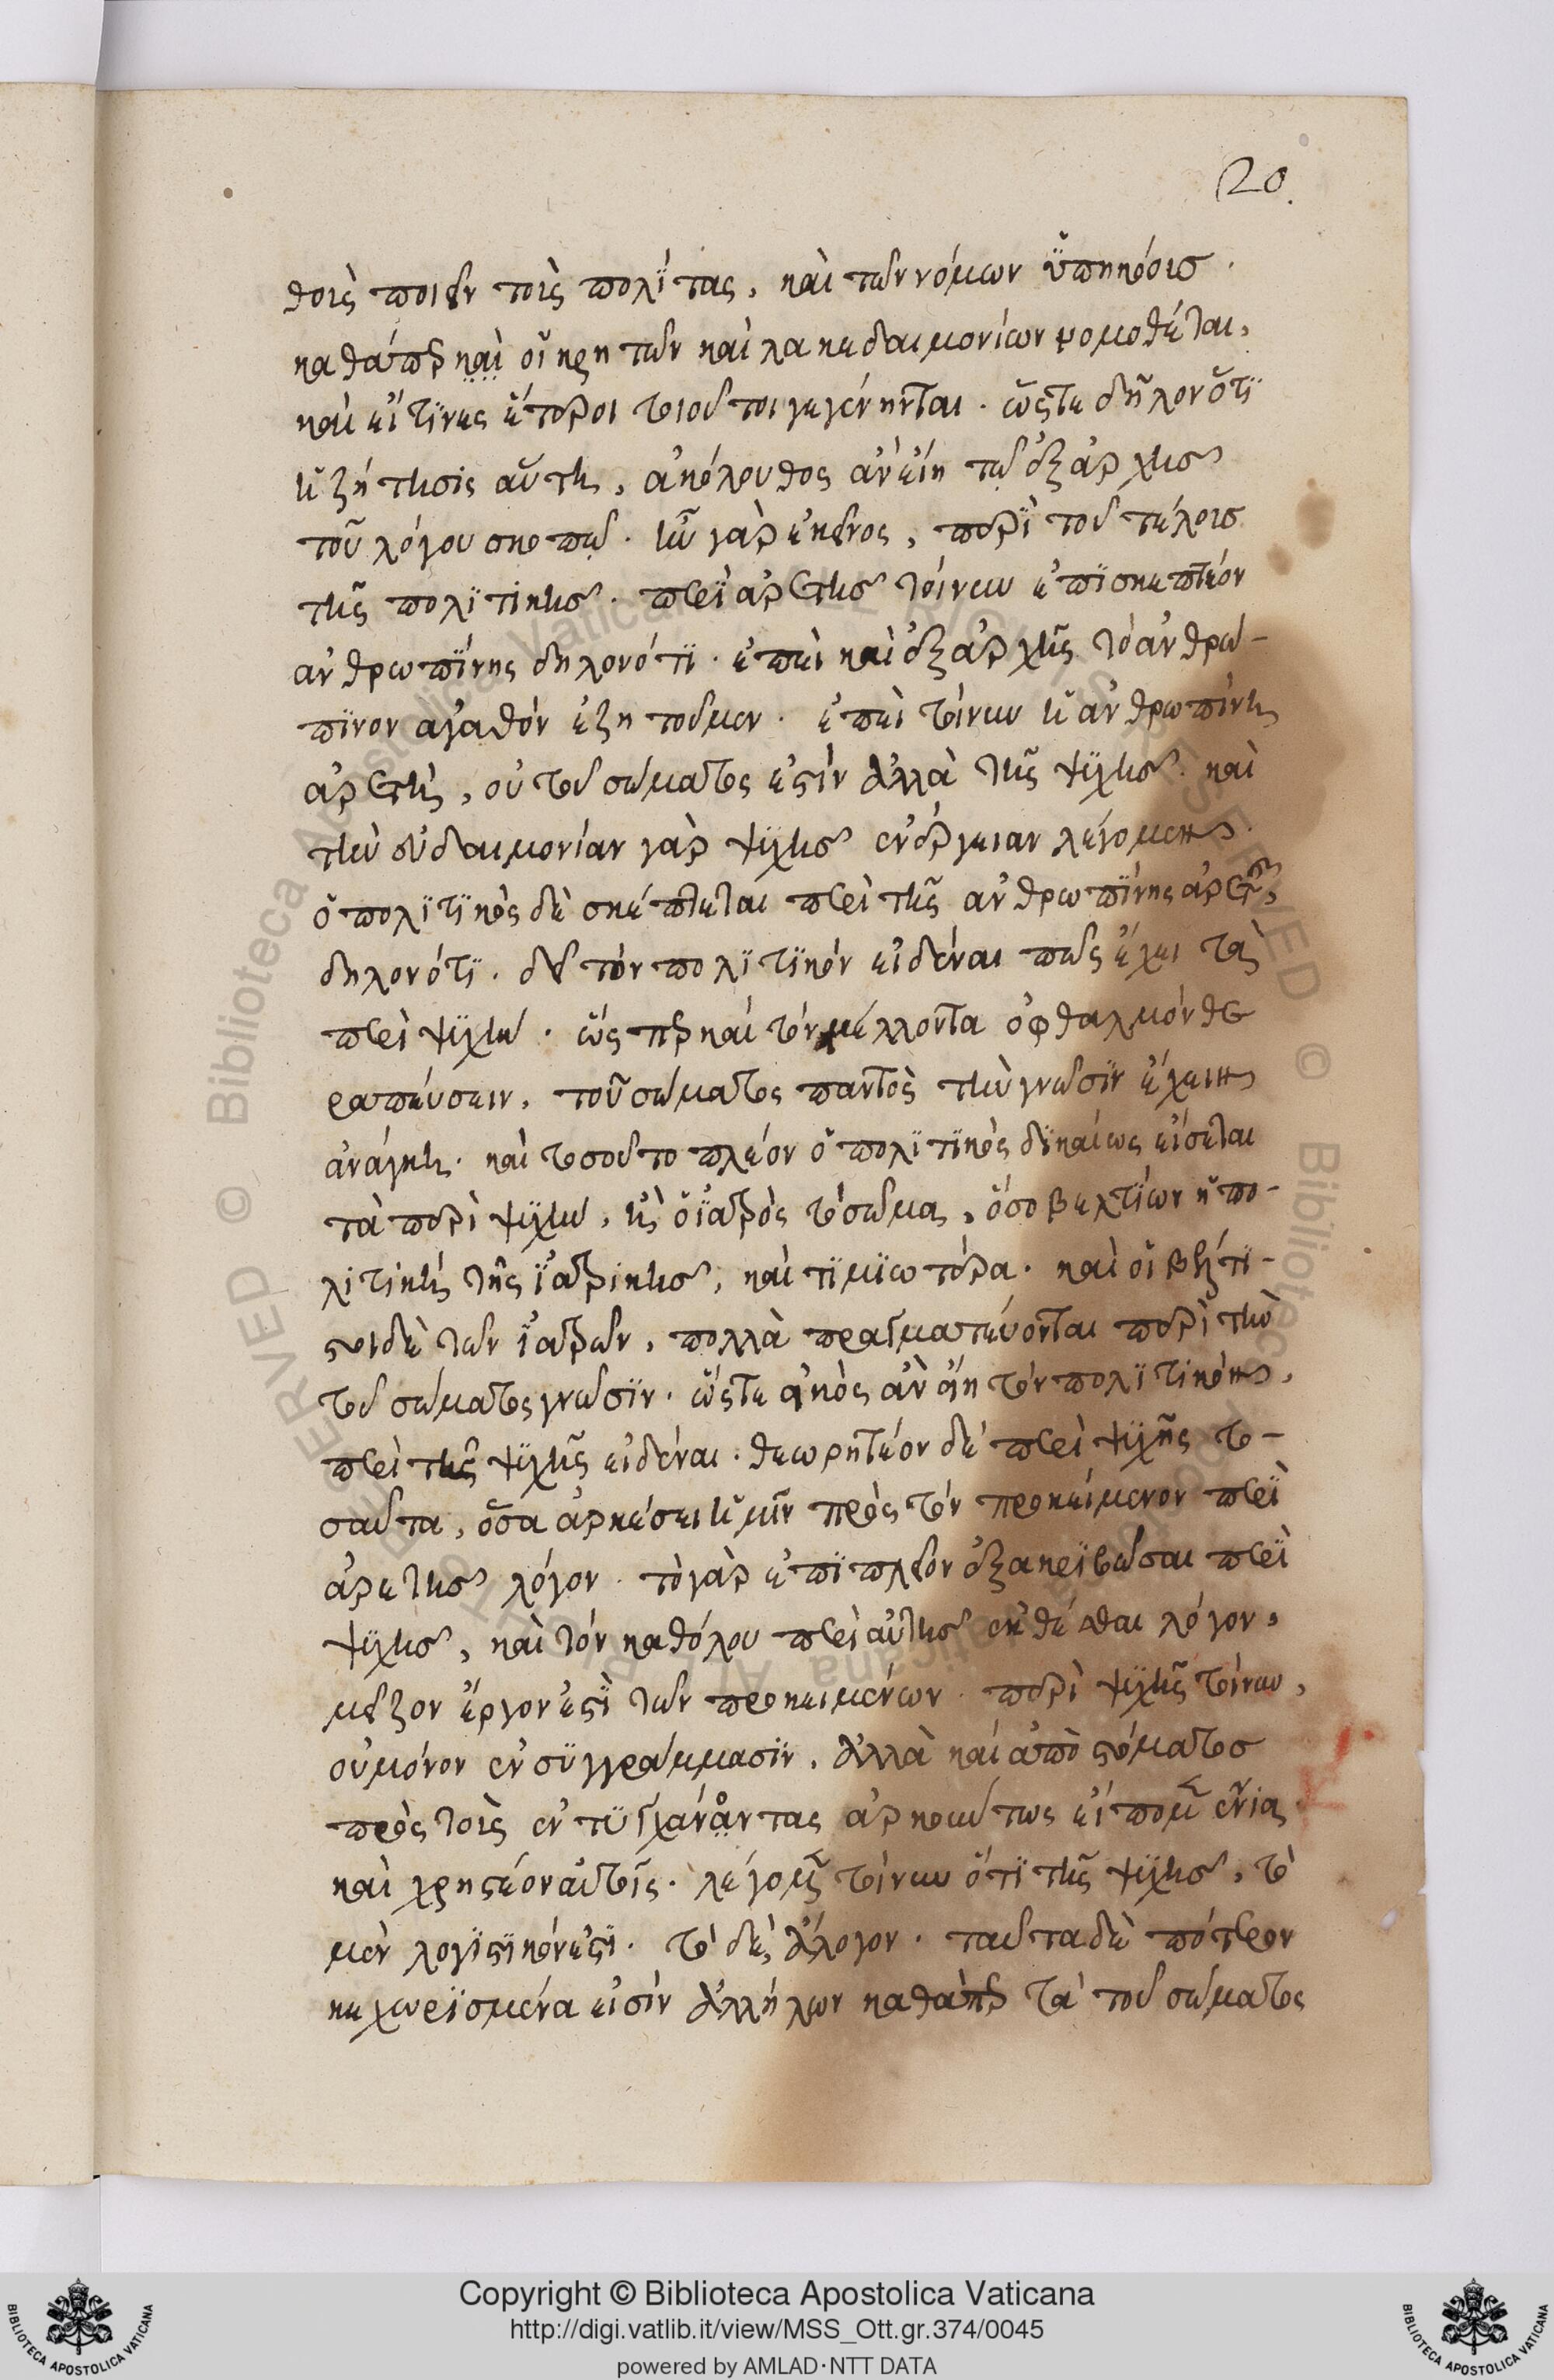 20.
θοὺς ποιεῖν τοὺς πολίτας, καὶ τῶν νόμων ὑπηκόους.
καθάπερ καὶ οἱ κρητῶν καὶ λακεδαιμονίων νομοθέται,
καὶ εἴ τινες ἕτεροι τοιοῦτοι γεγένηνται. ὥστε δῆλον ὅτι
ἡ ζήτησις αὕτη, ἀκόλουθος ἂν εἴη τῷ ἐξ ἀρχῆς
τοῦ λόγου σκοπῷ. ἦν γὰρ ἐκεῖνος, περὶ τοῦ τέλους
τῆς πολιτικῆς. περὶ ἀρετῆς τοίνυν ἐπισκεπτέον
ἀνθρωπίνης δηλονότι. ἐπεὶ καὶ ἐξ ἀρχῆς τὸ ἀνθρώ-
πινον ἀγαθὸν ἐζητοῦμεν. ἐπεὶ τοίνυν ἡ ἀνθρωπίνη
ἀρετὴ, οὐ τοῦ σώματός ἐστιν ἀλλὰ τῆς ψυχῆς. καὶ
τὴν εὐδαιμονίαν γὰρ ψυχῆς ἐνέργειαν λέγομεν.
ὁ πολιτικὸς δὲ σκέπτεται περὶ τῆς ἀνθρωπίνης ἀρετῆς,
δηλονότι. δεῖ τὸν πολιτικὸν εἰδέναι πῶς ἔχει τὰ
περὶ ψυχὴν. ὥσπερ καὶ τὸν μέλλοντα ὀφθαλμὸν θε
ραπεύσειν, τοῦ σώματος παντὸς τὴν γνῶσιν ἔχειν
ἀνάγκη. καὶ τοσοῦτο πλέον ὁ πολιτικὸς δικαίως εἴσεται
τὰ περὶ ψυχὴν, ἢ ὁ ἰατρὸς τὸ σῶμα, ὅσο βελτίων ἡ πο-
λιτικὴ τῆς ἰατρικῆς, καὶ τιμιωτέρα. καὶ οἱ βέλτι-
στοι δὲ τῶν ἰατρῶν, πολλὰ πραγματεύονται περὶ τὴν
τοῦ σώματος γνῶσιν. ὥστε εἰκὸς ἂν εἴη τὸν πολιτικὸν,
περὶ τῆς ψυχῆς εἰδέναι. θεωρητέον δὲ περὶ ψυχῆς το-
σαῦτα, ὅσα ἀρκέσει ἡμῖν πρὸς τὸν προκείμενον περὶ
ἀρετῆς λόγον. τὸ γὰρ ἐπιπλεῖον ἐξακριβῶσαι περὶ
ψυχῆς, καὶ τὸν καθόλου περὶ αὐτῆς ἐκθέσθαι λόγον,
μεῖζον ἔργον ἐστὶ τῶν προκειμένων. περὶ ψυχῆς τοίνυν,
οὐ μόνον ἐν συγγράμμασιν, ἀλλὰ καὶ ἀπὸ στόματος
πρὸς τοὺς ἐντυγχάνοντας ἀρκούντως εἴπομεν ἔνια
καὶ χρηστέον αὐτοῖς. λέγομεν τοίνυν ὅτι τῆς ψυχῆς, τὸ
μὲν λογιστικόν ἐστι. τὸ δὲ, ἄλογον. ταῦτα δὲ πότερον
κεχωρισμένα εἰσὶν ἀλλήλων καθάπερ τὰ τοῦ σώματος
Copyright © Biblioteca Apostolica Vaticana
http://digi.vatlib.it/view/MSS_Ott.gr.374/0045
powered by AMLAD·NTT DATA